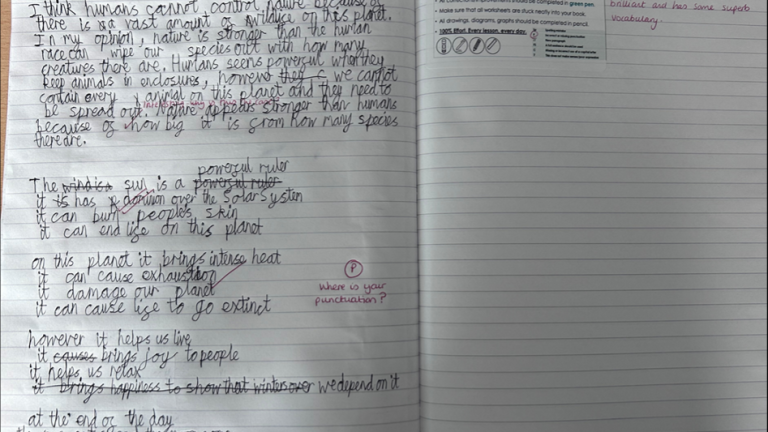 I think humans cannot control nature because of
there is a vast amount of wildlife on this planet.
In my opinion, nature is stronger than the human
race can wipe our species out with how many
creatures there are. Humans seems powerful when they
keep animals in enclosures, however they c we cannot
contain every animal on this planet and they need to
be spread out. Nature appears stronger than humans
because of how big it is from how many species
there are.
powerful ruler
The wind is sun is a powerful ruler
it is has dominion over the Solar System
it can burn people's skin
it can end life on this planet
on this planet it brings intense heat
it can cause exhaustion
it damage our planet
it can cause life to go extinct
P
Where is your
punctuation?
however it helps us live
it causes brings joy to people
it helps us relax
it brings happiness to show that winters over we depend on it
at the end of the day
• Make sure that all worksheets are stuck neatly into your book.
• All drawings, diagrams, graphs should be completed in pencil.
• 100% Effort. Every lesson, every day.
brilliant and has some superb
vocabulary.